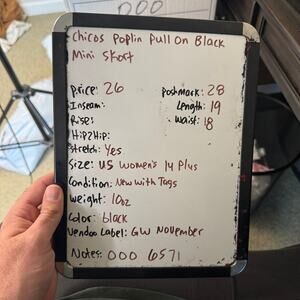 000
Chicos Poplin Pull On Black
Mini Skort
Price: 26 Poshmark: 28
Inseam: Length: 19
Rise: Waist: 18
Hip2Hip:
Stretch: Yes
Size: US Women's 14 Plus
Condition: New With Tags
Weight: 10oz
Color: black
Vendoo Label: GW November
Notes: 000 6571